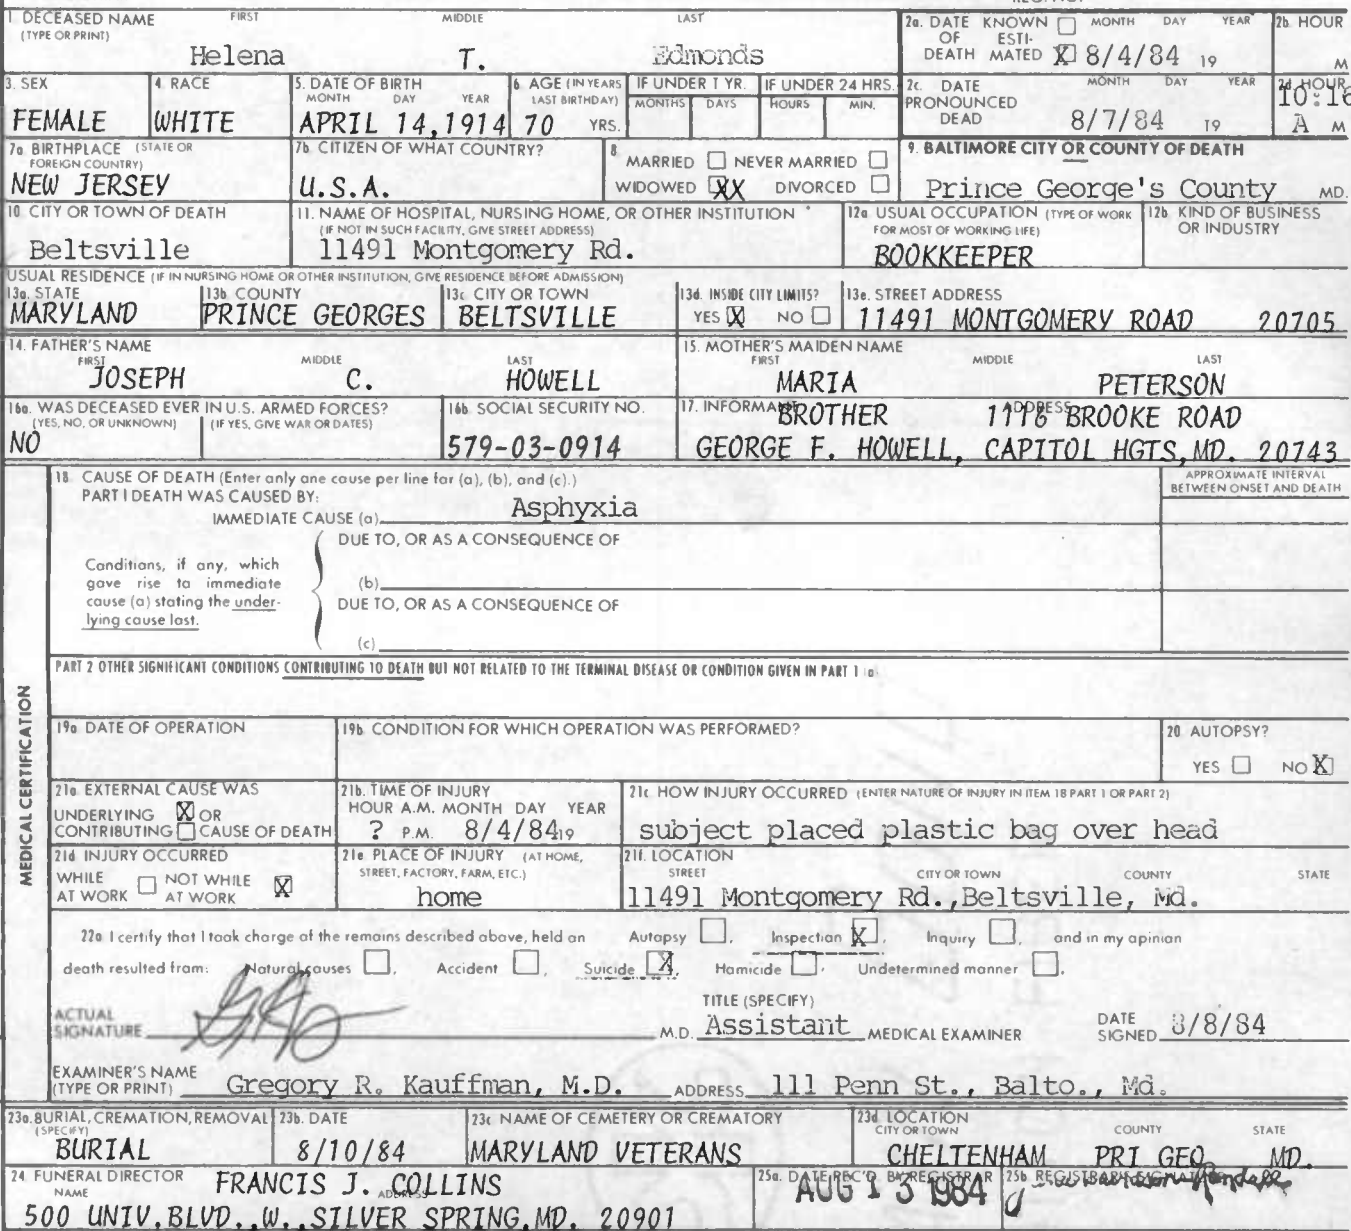 1 DECEASED NAME FIRST MIDDLE LAST
(TYPE OR PRINT)
Helena T. Edmonds
2a. DATE KNOWN ☐ MONTH DAY YEAR
OF ESTI-
DEATH MATED ☒ 8/4/84 19
2b. HOUR
M
3. SEX
FEMALE
4. RACE
WHITE
5. DATE OF BIRTH
MONTH DAY YEAR
APRIL 14,1914
6. AGE (IN YEARS
LAST BIRTHDAY)
70 YRS.
IF UNDER 1 YR.
MONTHS DAYS
IF UNDER 24 HRS.
HOURS MIN.
2c. DATE MONTH DAY YEAR
PRONOUNCED
DEAD 8/7/84 19
2d. HOUR
10:16
A M
7a. BIRTHPLACE (STATE OR
FOREIGN COUNTRY)
NEW JERSEY
7b. CITIZEN OF WHAT COUNTRY?
U.S.A.
8.
MARRIED ☐ NEVER MARRIED ☐
WIDOWED XX DIVORCED ☐
9. BALTIMORE CITY OR COUNTY OF DEATH
Prince George's County MD.
10. CITY OR TOWN OF DEATH
Beltsville
11. NAME OF HOSPITAL, NURSING HOME, OR OTHER INSTITUTION
(IF NOT IN SUCH FACILITY, GIVE STREET ADDRESS)
11491 Montgomery Rd.
12a USUAL OCCUPATION (TYPE OF WORK
FOR MOST OF WORKING LIFE)
BOOKKEEPER
12b. KIND OF BUSINESS
OR INDUSTRY
USUAL RESIDENCE (IF IN NURSING HOME OR OTHER INSTITUTION, GIVE RESIDENCE BEFORE ADMISSION)
13a. STATE
MARYLAND
13b. COUNTY
PRINCE GEORGES
13c. CITY OR TOWN
BELTSVILLE
13d. INSIDE CITY LIMITS?
YES ☒ NO ☐
13e. STREET ADDRESS
11491 MONTGOMERY ROAD 20705
14. FATHER'S NAME
FIRST MIDDLE LAST
JOSEPH C. HOWELL
15. MOTHER'S MAIDEN NAME
FIRST MIDDLE LAST
MARIA PETERSON
16a. WAS DECEASED EVER IN U.S. ARMED FORCES?
(YES, NO, OR UNKNOWN) (IF YES, GIVE WAR OR DATES)
NO
16b. SOCIAL SECURITY NO.
579-03-0914
17. INFORMANT BROTHER ADDRESS 1116 BROOKE ROAD
GEORGE F. HOWELL, CAPITOL HGTS,MD. 20743
MEDICAL CERTIFICATION
18. CAUSE OF DEATH (Enter only one cause per line for (a), (b), and (c).)
PART I DEATH WAS CAUSED BY:
IMMEDIATE CAUSE (a) Asphyxia
APPROXIMATE INTERVAL
BETWEEN ONSET AND DEATH
DUE TO, OR AS A CONSEQUENCE OF
Conditions, if any, which
gave rise to immediate
cause (a) stating the under-
lying cause last.
(b)
DUE TO, OR AS A CONSEQUENCE OF
(c)
PART 2 OTHER SIGNIFICANT CONDITIONS CONTRIBUTING TO DEATH BUT NOT RELATED TO THE TERMINAL DISEASE OR CONDITION GIVEN IN PART 1 (a)
19a DATE OF OPERATION
19b. CONDITION FOR WHICH OPERATION WAS PERFORMED?
20 AUTOPSY?
YES ☐ NO ☒
21a. EXTERNAL CAUSE WAS
UNDERLYING ☒ OR
CONTRIBUTING ☐ CAUSE OF DEATH
21b. TIME OF INJURY
HOUR A.M. MONTH DAY YEAR
? P.M. 8/4/84 19
21c HOW INJURY OCCURRED (ENTER NATURE OF INJURY IN ITEM 18 PART 1 OR PART 2)
subject placed plastic bag over head
21d INJURY OCCURRED
WHILE AT WORK ☐ NOT WHILE AT WORK ☒
21e PLACE OF INJURY (AT HOME,
STREET, FACTORY, FARM, ETC.)
home
21f. LOCATION
STREET CITY OR TOWN COUNTY STATE
11491 Montgomery Rd.,Beltsville, Md.
22a I certify that I took charge of the remains described above, held an Autopsy ☐, Inspection ☒, Inquiry ☐, and in my opinion
death resulted from: Natural causes ☐, Accident ☐, Suicide ☒, Homicide ☐, Undetermined manner ☐.
ACTUAL
SIGNATURE
M.D.
TITLE (SPECIFY)
Assistant MEDICAL EXAMINER
DATE
SIGNED 8/8/84
EXAMINER'S NAME
(TYPE OR PRINT) Gregory R. Kauffman, M.D. ADDRESS 111 Penn St., Balto., Md.
23a. BURIAL, CREMATION, REMOVAL
(SPECIFY)
BURIAL
23b. DATE
8/10/84
23c NAME OF CEMETERY OR CREMATORY
MARYLAND VETERANS
23d LOCATION
CITY OR TOWN COUNTY STATE
CHELTENHAM PRI GEO MD.
24 FUNERAL DIRECTOR
NAME FRANCIS J. COLLINS ADDRESS
500 UNIV.BLVD.,W.,SILVER SPRING,MD. 20901
25a. DATE REC'D BY REGISTRAR
AUG 13 1984
25b REGISTRAR'S SIGNATURE